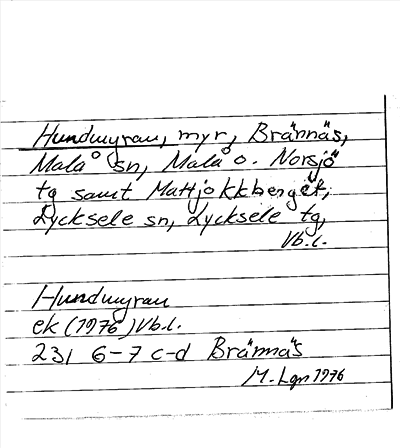 Hundmyran, myr, Brännäs,
Malå sn, Malå o. Norsjö
tg samt Mattjokkberget,
Lycksele sn, Lycksele tg,
Vb.l.
Hundmyran
ek (1976) Vb.l.
23I 6-7 c-d Brännäs
M. Lgn 1976